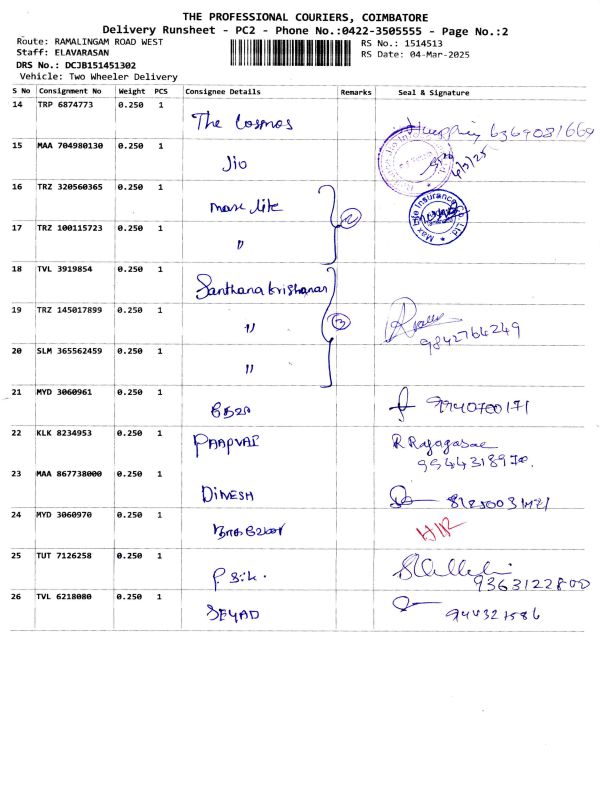 THE PROFESSIONAL COURIERS, COIMBATORE
Delivery Runsheet - PC2 - Phone No.:0422-3505555 - Page No.:2
Route: RAMALINGAM ROAD WEST
RS No.: 1514513
Staff: ELAVARASAN
RS Date: 04-Mar-2025
DRS No.: DCJB151451302
Vehicle: Two Wheeler Delivery
S No Consignment No Weight PCS Consignee Details Remarks Seal & Signature
14 TRP 6874773 0.250 1 The Cosmos 6369081669
15 MAA 704980130 0.250 1 Jio
16 TRZ 320560365 0.250 1 max life 2
17 TRZ 100115723 0.250 1 "
Max Life Insurance Co. Ltd.
18 TVL 3919854 0.250 1 Santhana krishanan
19 TRZ 145017899 0.250 1 " 3 9842764249
20 SLM 365562459 0.250 1 "
21 MYD 3060961 0.250 1 9940700171
22 KLK 8234953 0.250 1 PAAPVAI R Rajagasae
9544318970.
23 MAA 867738000 0.250 1 DINESH
24 MYD 3060970 0.250 1
25 TUT 7126258 0.250 1 9363122800
26 TVL 6218080 0.250 1 SEYAD 944327586